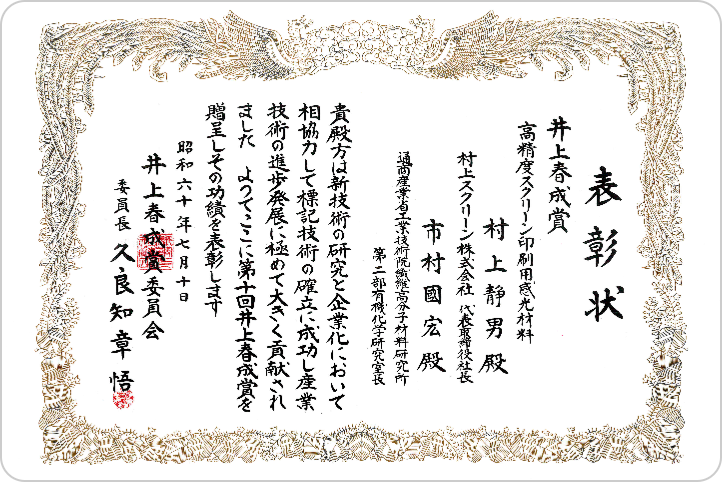 表彰状
井上春成賞
高精度スクリーン印刷用感光材料
村上スクリーン株式会社 代表取締役社長
村上静男殿
通商産業省工業技術院繊維高分子材料研究所
第二部有機化学研究室長
市村國宏殿
貴殿方は新技術の研究と企業化において
相協力して標記技術の確立に成功し産業
技術の進歩発展に極めて大きく貢献され
ました よってここに第十回井上春成賞を
贈呈しその功績を表彰します
昭和六十年七月十日
井上春成賞委員会
委員長 久良知章悟